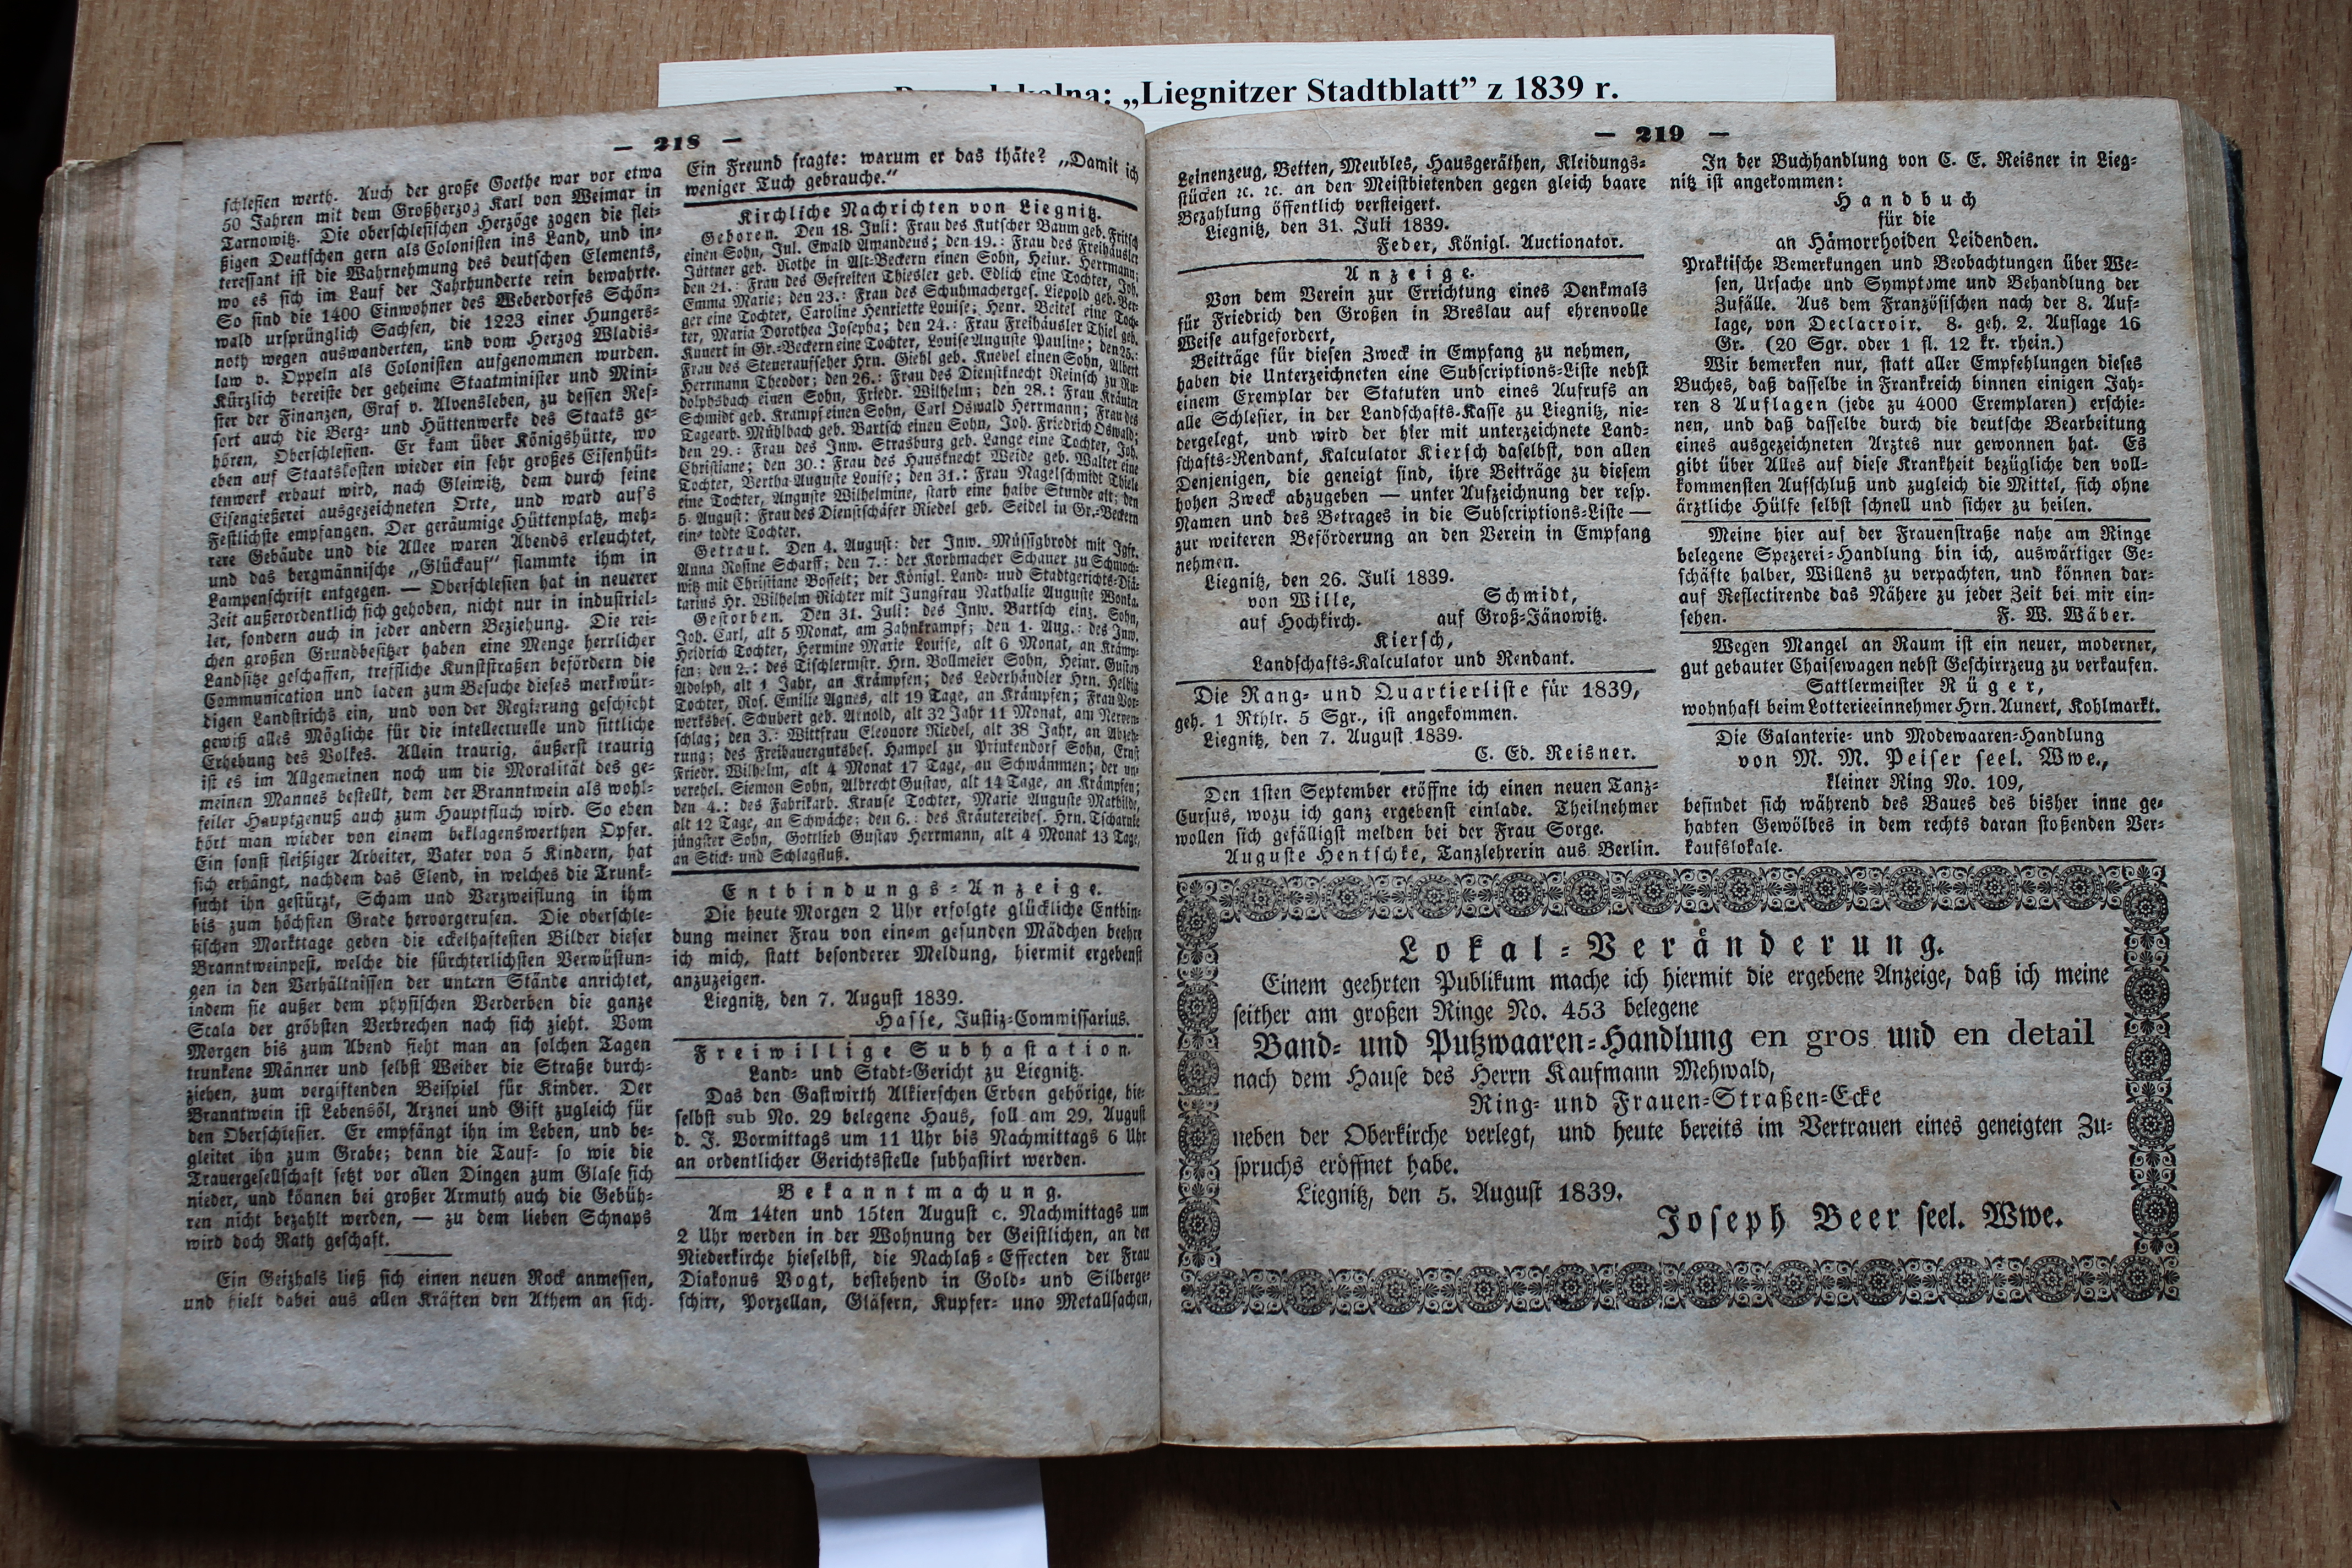 lokalna: „Liegnitzer Stadtblatt” z 1839 r.
— 218 —
schlesien werth. Auch der große Goethe war vor etwa
50 Jahren mit dem Großherzog Karl von Weimar in
Tarnowitz. Die oberschlesischen Herzöge zogen die flei-
ßigen Deutschen gern als Colonisten ins Land, und in-
teressant ist die Wahrnehmung des deutschen Elements,
wo es sich im Lauf der Jahrhunderte rein bewahrte.
So sind die 1400 Einwohner des Weberdorfes Schön-
wald ursprünglich Sachsen, die 1223 einer Hungers-
noth wegen auswanderten, und vom Herzog Wladis-
law v. Oppeln als Colonisten aufgenommen wurden.
Kürzlich bereiste der geheime Staatminister und Mini-
ster der Finanzen, Graf v. Alvensleben, zu dessen Res-
sort auch die Berg- und Hüttenwerke des Staats ge-
hören, Oberschlesien. Er kam über Königshütte, wo
eben auf Staatskosten wieder ein sehr großes Eisenhüt-
tenwerk erbaut wird, nach Gleiwitz, dem durch seine
Eisengießerei ausgezeichneten Orte, und ward auf's
Festlichste empfangen. Der geräumige Hüttenplatz, meh-
rere Gebäude und die Allee waren Abends erleuchtet,
und das bergmännische „Glückauf“ flammte ihm in
Lampenschrift entgegen. — Oberschlesien hat in neuerer
Zeit außerordentlich sich gehoben, nicht nur in industriel-
ler, sondern auch in jeder andern Beziehung. Die rei-
chen großen Grundbesitzer haben eine Menge herrlicher
Landsitze geschaffen, treffliche Kunststraßen befördern die
Communication und laden zum Besuche dieses merkwür-
digen Landstrichs ein, und von der Regierung geschieht
gewiß alles Mögliche für die intellectuelle und sittliche
Erhebung des Volkes. Allein traurig, äußerst traurig
ist es im Allgemeinen noch um die Moralität des ge-
meinen Mannes bestellt, dem der Branntwein als wohl-
feiler Hauptgenuß auch zum Hauptfluch wird. So eben
hört man wieder von einem beklagenswerthen Opfer.
Ein sonst fleißiger Arbeiter, Vater von 5 Kindern, hat
sich erhängt, nachdem das Elend, in welches die Trunk-
sucht ihn gestürzt, Scham und Verzweiflung in ihm
bis zum höchsten Grade hervorgerufen. Die oberschle-
sischen Markttage geben die eckelhaftesten Bilder dieser
Branntweinpest, welche die fürchterlichsten Verwüstun-
gen in den Verhältnissen der untern Stände anrichtet,
indem sie außer dem physischen Verderben die ganze
Scala der gröbsten Verbrechen nach sich zieht. Vom
Morgen bis zum Abend sieht man an solchen Tagen
trunkene Männer und selbst Weiber die Straße durch-
ziehen, zum vergiftenden Beispiel für Kinder. Der
Branntwein ist Lebensöl, Arznei und Gift zugleich für
den Oberschlesier. Er empfängt ihn im Leben, und be-
gleitet ihn zum Grabe; denn die Tauf- so wie die
Trauergesellschaft setzt vor allen Dingen zum Glase sich
nieder, und können bei großer Armuth auch die Gebüh-
ren nicht bezahlt werden, — zu dem lieben Schnaps
wird doch Rath geschaft.
Ein Geizhals ließ sich einen neuen Rock anmessen,
und hielt dabei aus allen Kräften den Athem an sich.
Ein Freund fragte: warum er das thäte? „Damit ich
weniger Tuch gebrauche.“
Kirchliche Nachrichten von Liegnitz.
Geboren. Den 18. Juli: Frau des Kutscher Baum geb. Fritsch
einen Sohn, Jul. Ewald Amandeus; den 19.: Frau des Freihäusler
Jüttner geb. Rothe in Alt-Beckern einen Sohn, Heinr. Herrmann;
den 21.: Frau des Gefreiten Thiesler geb. Edlich eine Tochter, Joh.
Emma Marie; den 23.: Frau des Schuhmacherges. Liepold geb. Ber-
ger eine Tochter, Caroline Henriette Louise; Henr. Beitel eine Toch-
ter, Maria Dorothea Josepha; den 24.: Frau Freihäusler Thiel geb.
Kunert in Gr.-Beckern eine Tochter, Louise Auguste Pauline; den 25.:
Frau des Steueraufseher Hrn. Giehl geb. Knebel einen Sohn, Albert
Herrmann Theodor; den 26.: Frau des Dienstknecht Reinsch zu Ru-
dolphsbach einen Sohn, Friedr. Wilhelm; den 28.: Frau Kräuter
Schmidt geb. Krampf einen Sohn, Carl Oswald Herrmann; Frau des
Tagearb. Mühlbach geb. Bartsch einen Sohn, Joh. Friedrich Oswald;
den 29.: Frau des Inw. Strasburg geb. Lange eine Tochter, Joh.
Christiane; den 30.: Frau des Hausknecht Weide geb. Walter eine
Tochter, Bertha Auguste Louise; den 31.: Frau Nagelschmidt Thiele
eine Tochter, Auguste Wilhelmine, starb eine halbe Stunde alt; den
5. August: Frau des Dienstschäfer Riedel geb. Seidel in Gr.-Beckern
eine todte Tochter.
Getraut. Den 4. August: der Inw. Müssigbrodt mit Igfr.
Anna Rosine Scharff; den 7.: der Korbmacher Schauer zu Schmoch-
witz mit Christiane Bosselt; der Königl. Land- und Stadtgerichts-Diä-
tarius Hr. Wilhelm Richter mit Jungfrau Nathalie Auguste Wonka.
Gestorben. Den 31. Juli: des Inw. Bartsch einz. Sohn,
Joh. Carl, alt 5 Monat, am Zahnkrampf; den 1. Aug.: des Inw.
Heidrich Tochter, Hermine Marie Louise, alt 6 Monat, an Krämp-
fen; den 2.: des Tischlermstr. Hrn. Vollmeier Sohn, Heinr. Gustav
Adolph, alt 1 Jahr, an Krämpfen; des Lederhändler Hrn. Helbig
Tochter, Ros. Emilie Agnes, alt 19 Tage, an Krämpfen; Frau Vor-
werksbes. Schubert geb. Arnold, alt 32 Jahr 11 Monat, am Nerven-
schlag; den 3.: Wittfrau Eleonore Riedel, alt 38 Jahr, an Abzeh-
rung; des Freibauergutsbes. Hampel zu Prinkendorf Sohn, Ernst
Friedr. Wilhelm, alt 4 Monat 17 Tage, an Schwämmen; der un-
verehel. Siemon Sohn, Albrecht Gustav, alt 14 Tage, an Krämpfen;
den 4.: des Fabrikarb. Krause Tochter, Marie Auguste Mathilde,
alt 12 Tage, an Schwäche; den 6.: des Kräutereibes. Hrn. Tscharnle
jüngster Sohn, Gottlieb Gustav Herrmann, alt 4 Monat 13 Tage,
an Stick- und Schlagfluß.
Entbindungs-Anzeige.
Die heute Morgen 2 Uhr erfolgte glückliche Entbin-
dung meiner Frau von einem gesunden Mädchen beehre
ich mich, statt besonderer Meldung, hiermit ergebenst
anzuzeigen.
Liegnitz, den 7. August 1839.
Hasse, Justiz-Commissarius.
Freiwillige Subhastation.
Land- und Stadt-Gericht zu Liegnitz.
Das den Gastwirth Alkierschen Erben gehörige, hie-
selbst sub No. 29 belegene Haus, soll am 29. August
d. J. Vormittags um 11 Uhr bis Nachmittags 6 Uhr
an ordentlicher Gerichtsstelle subhastirt werden.
Bekanntmachung.
Am 14ten und 15ten August c. Nachmittags um
2 Uhr werden in der Wohnung der Geistlichen, an der
Niederkirche hieselbst, die Nachlaß-Effecten der Frau
Diakonus Vogt, bestehend in Gold- und Silberge-
schirr, Porzellan, Gläsern, Kupfer- und Metallsachen,
— 219 —
Leinenzeug, Betten, Meubles, Hausgeräthen, Kleidungs-
stücken ꝛc. ꝛc. an den Meistbietenden gegen gleich baare
Bezahlung öffentlich versteigert.
Liegnitz, den 31. Juli 1839.
Feder, Königl. Auctionator.
Anzeige.
Von dem Verein zur Errichtung eines Denkmals
für Friedrich den Großen in Breslau auf ehrenvolle
Weise aufgefordert,
Beiträge für diesen Zweck in Empfang zu nehmen,
haben die Unterzeichneten eine Subscriptions-Liste nebst
einem Exemplar der Statuten und eines Aufrufs an
alle Schlesier, in der Landschafts-Kasse zu Liegnitz, nie-
dergelegt, und wird der hier mit unterzeichnete Land-
schafts-Rendant, Kalculator Kiersch daselbst, von allen
Denjenigen, die geneigt sind, ihre Beiträge zu diesem
hohen Zweck abzugeben — unter Aufzeichnung der resp.
Namen und des Betrages in die Subscriptions-Liste —
zur weiteren Beförderung an den Verein in Empfang
nehmen.
Liegnitz, den 26. Juli 1839.
von Wille, Schmidt,
auf Hochkirch. auf Groß-Jänowitz.
Kiersch,
Landschafts-Kalculator und Rendant.
Die Rang- und Quartierliste für 1839,
geh. 1 Rthlr. 5 Sgr., ist angekommen.
Liegnitz, den 7. August 1839.
C. Ed. Reisner.
Den 1sten September eröffne ich einen neuen Tanz-
Cursus, wozu ich ganz ergebenst einlade. Theilnehmer
wollen sich gefälligst melden bei der Frau Sorge.
Auguste Hentschke, Tanzlehrerin aus Berlin.
In der Buchhandlung von C. E. Reisner in Lieg-
nitz ist angekommen:
Handbuch
für die
an Hämorrhoiden Leidenden.
Praktische Bemerkungen und Beobachtungen über We-
sen, Ursache und Symptome und Behandlung der
Zufälle. Aus dem Französischen nach der 8. Auf-
lage, von Declacroix. 8. geh. 2. Auflage 16
Gr. (20 Sgr. oder 1 fl. 12 kr. rhein.)
Wir bemerken nur, statt aller Empfehlungen dieses
Buches, daß dasselbe in Frankreich binnen einigen Jah-
ren 8 Auflagen (jede zu 4000 Exemplaren) erschie-
nen, und daß dasselbe durch die deutsche Bearbeitung
eines ausgezeichneten Arztes nur gewonnen hat. Es
gibt über Alles auf diese Krankheit bezügliche den voll-
kommensten Aufschluß und zugleich die Mittel, sich ohne
ärztliche Hülfe selbst schnell und sicher zu heilen.
Meine hier auf der Frauenstraße nahe am Ringe
belegene Spezerei-Handlung bin ich, auswärtiger Ge-
schäfte halber, Willens zu verpachten, und können dar-
auf Reflectirende das Nähere zu jeder Zeit bei mir ein-
sehen. F. W. Wäber.
Wegen Mangel an Raum ist ein neuer, moderner,
gut gebauter Chaisewagen nebst Geschirrzeug zu verkaufen.
Sattlermeister Rüger,
wohnhaft beim Lotterieeinnehmer Hrn. Aunert, Kohlmarkt.
Die Galanterie- und Modewaaren-Handlung
von M. M. Peiser seel. Wwe.,
kleiner Ring No. 109,
befindet sich während des Baues des bisher inne ge-
habten Gewölbes in dem rechts daran stoßenden Ver-
kaufslokale.
Lokal-Veränderung.
Einem geehrten Publikum mache ich hiermit die ergebene Anzeige, daß ich meine
seither am großen Ringe No. 453 belegene
Band- und Putzwaaren-Handlung en gros und en detail
nach dem Hause des Herrn Kaufmann Mehwald,
Ring- und Frauen-Straßen-Ecke
neben der Oberkirche verlegt, und heute bereits im Vertrauen eines geneigten Zu-
spruchs eröffnet habe.
Liegnitz, den 5. August 1839.
Joseph Beer seel. Wwe.